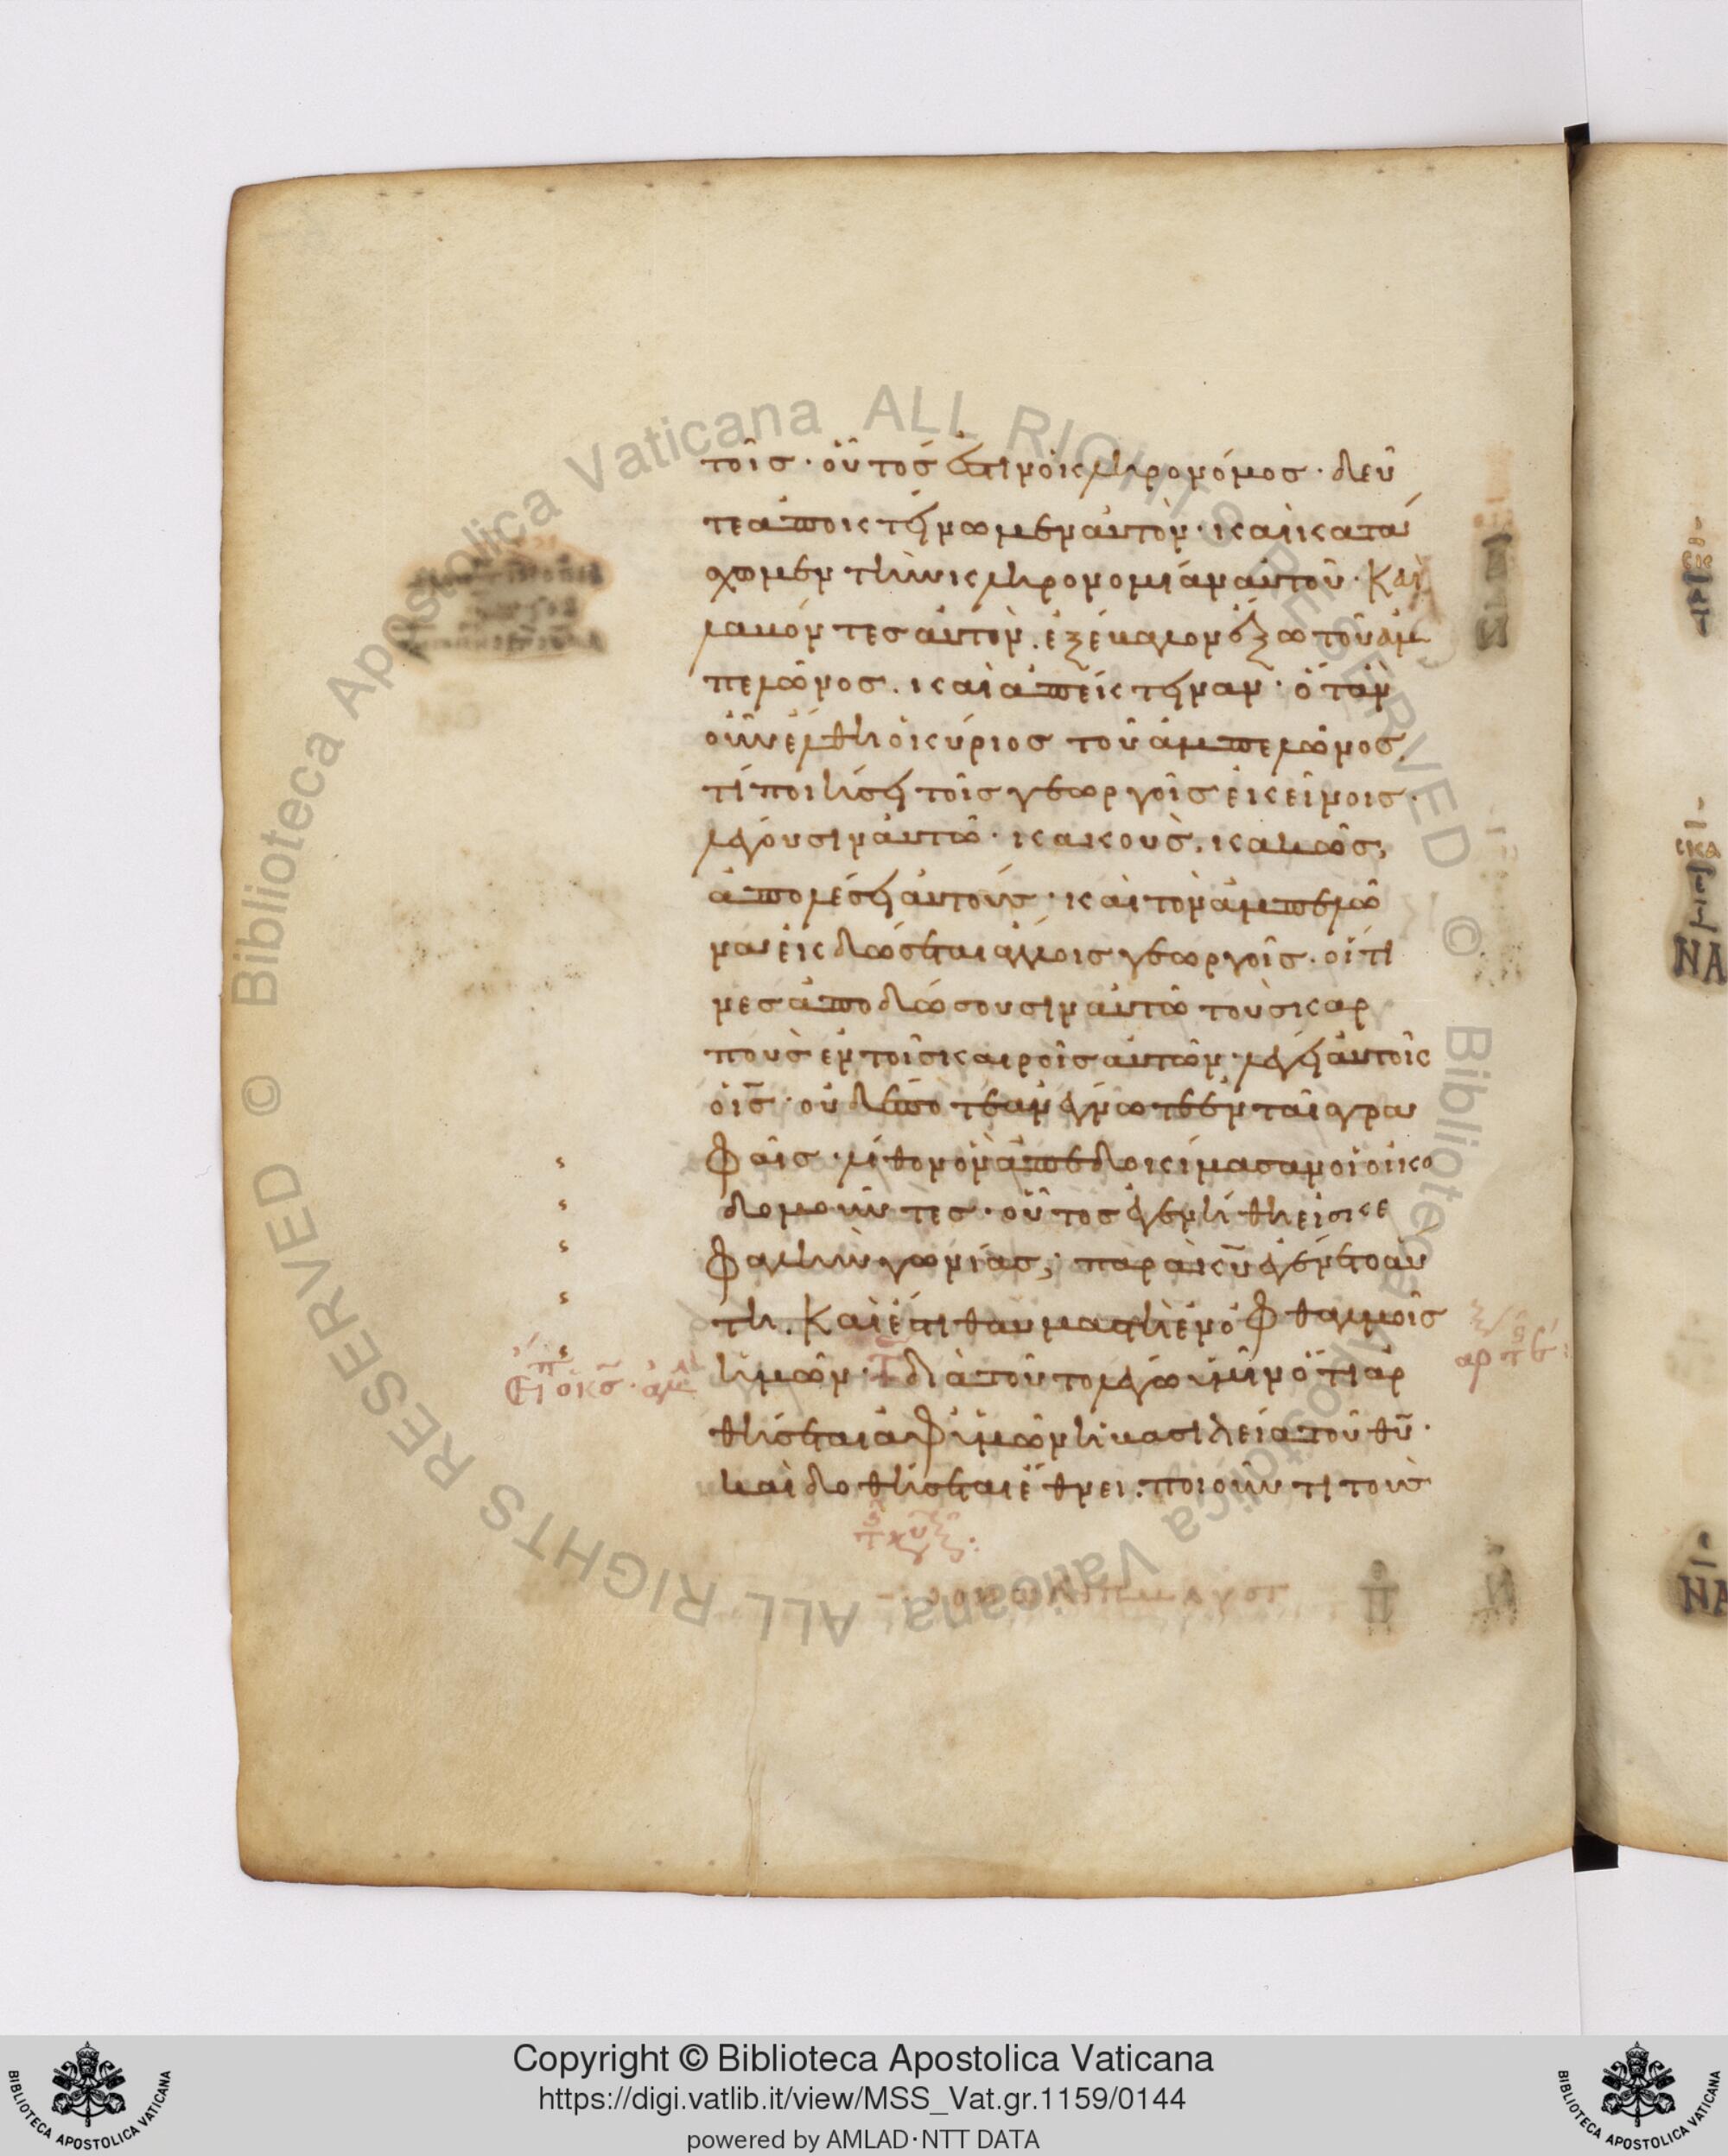 τοῖς· οὗτός ἐστιν ὁ κληρονόμος· δεῦ
τε ἀποκτείνωμεν αὐτὸν· καὶ κατά
σχωμεν τὴν κληρονομίαν αὐτοῦ· Καὶ
λαβόντες αὐτὸν. ἐξέβαλον ἔξω τοῦ ἀμ
πελῶνος. καὶ ἀπέκτειναν· ὅταν
οὖν ἔλθη ὁ κύριος τοῦ ἀμπελῶνος.
τί ποιήσει τοῖς γεωργοῖς ἐκείνοις·
λέγουσιν αὐτῶ· κακοὺς, κακῶς,
ἀπολέσει αὐτούς· καὶ τὸν ἀμπελῶ
να ἐκδώσεται ἄλλοις γεωργοῖς. οἵτι
νες ἀποδώσουσιν αὐτῶ τοὺς καρ
ποὺς ἐν τοῖς καιροῖς αὐτῶν· λέγει αὐτοῖς
ὁ ις̄· οὐδέποτε ἀνέγνωτε ἐν ταῖς γρα
φαῖς· λίθον ὃν ἀπεδοκίμασαν οἱ οἰκο
δομοῦντες· οὗτος ἐγενήθη εἰς κε
φαλὴν γωνίας; παρὰ κ̄υ ἐγένετο αὕ
τη. Καὶ ἔστι θαυμαστὴ ἐν ὀφθαλμοῖς
ἡμῶν· διὰ τοῦτο λέγω ὑμῖν ὅτι ἀρ
θήσεται ἀφ ὑμῶν ἡ βασιλεία τοῦ θ̄υ·
καὶ δοθήσεται ἔθνει. ποιοῦντι τοὺς
Copyright © Biblioteca Apostolica Vaticana
https://digi.vatlib.it/view/MSS_Vat.gr.1159/0144
powered by AMLAD·NTT DATA
BIBLIOTECA APOSTOLICA VATICANA
BIBLIOTECA APOSTOLICA VATICANA
© Biblioteca Apostolica Vaticana ALL RIGHTS RESERVED
© Biblioteca Apostolica Vaticana ALL RIGHTS RESERVED